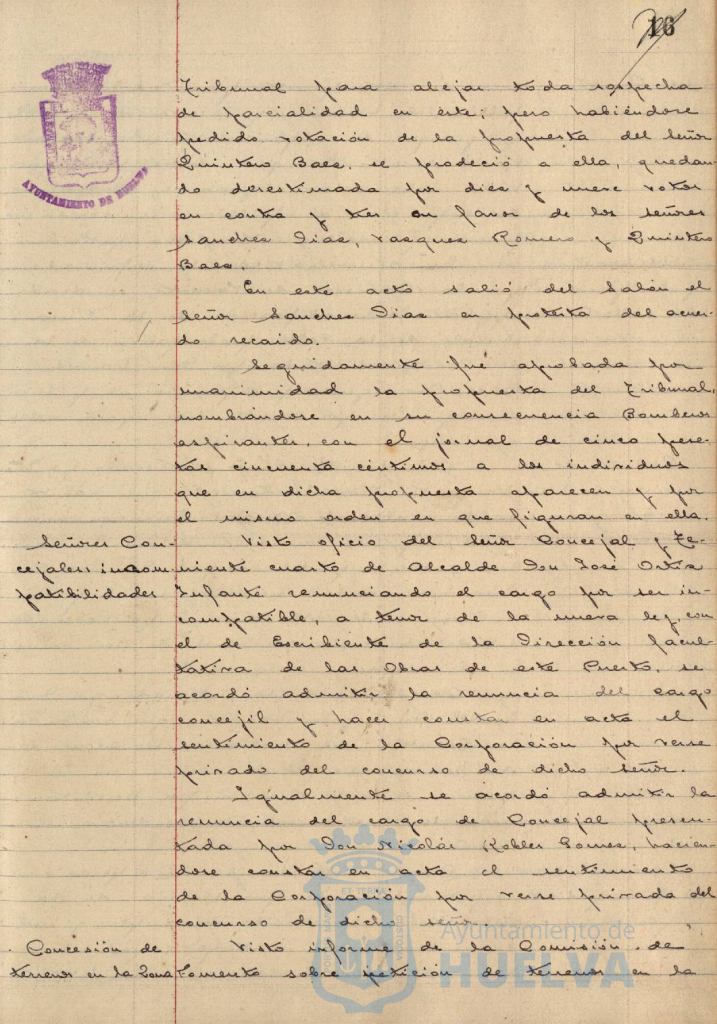 16
AYUNTAMIENTO DE HUELVA
Tribunal para alejar toda sospecha
de parcialidad en éste; pero habiéndose
pedido votación de la propuesta del Señor
Quintero Baez, se prodeció a ella, quedan-
do desestimada por diez y nueve votos
en contra y tres en favor de los señores
Sanchez Diaz, Vazquez Romero y Quintero
Baez.
En este acto salió del Salón el
Señor Sanchez Diaz en protesta del acuer-
do recaido.
Seguidamente fué aprobada por
unanimidad la propuesta del Tribunal,
nombrándose en su consecuencia Bomberos
aspirantes, con el jornal de cinco pese-
tas cincuenta céntimos a los individuos
que en dicha propuesta aparecen y por
el mismo orden en que figuran en ella.
Señores Con-
cejales: incom-
patibilidades
Visto oficio del Señor Concejal y Te-
niente cuarto de Alcalde Don José Ortiz
Infante renunciando el cargo por ser in-
compatible, a tenor de la nueva ley, con
el de Escribiente de la Dirección facul-
tativa de las Obras de este Puerto, se
acordó admitir la renuncia del cargo
concejil y hacer constar en acta el
sentimiento de la Corporación por verse
privado del concurso de dicho señor.
Igualmente se acordó admitir la
renuncia del cargo de Concejal presen-
tada por Don Nicolás Robles Gomez, hacien-
dose constar en acta el sentimiento
de la Corporación por verse privada del
concurso de dicho señor.
Concesión de
terrenos en la Zona
Visto informe de la Comisión de
Fomento sobre petición de terrenos en la
Ayuntamiento de
HUELVA